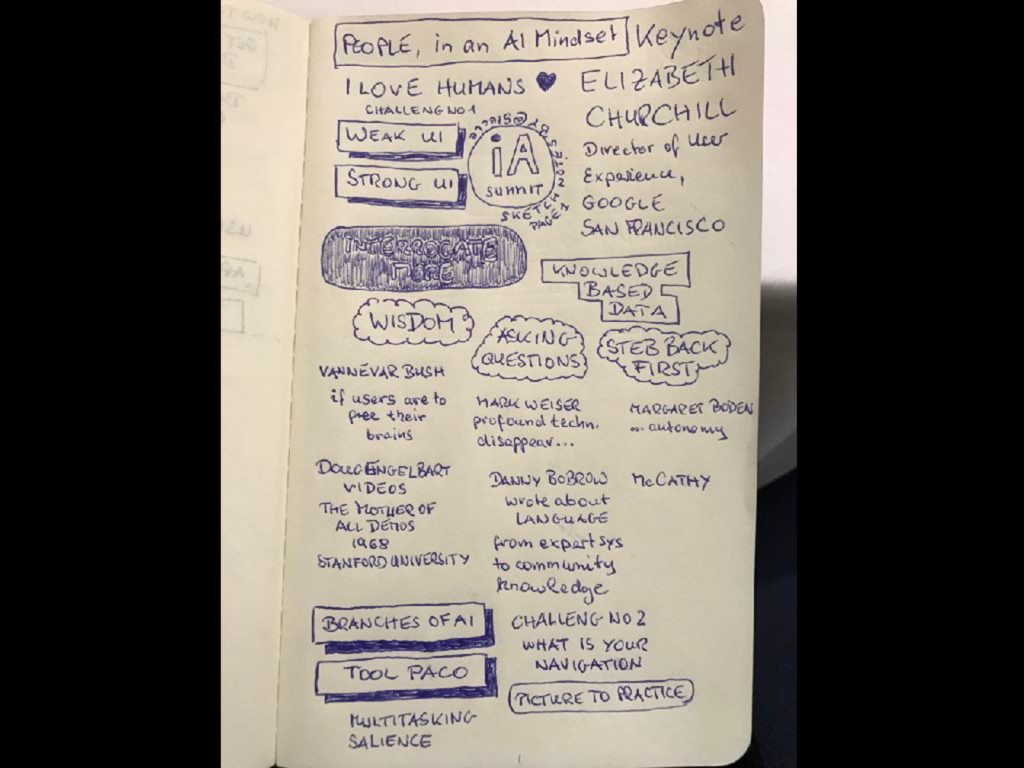 PEOPLE, in an AI Mindset Keynote
I LOVE HUMANS ♥ ELIZABETH
CHURCHILL
Director of User
Experience,
GOOGLE
SAN FRANCISCO
CHALLENG NO 1
WEAK UI
STRONG UI
iA
SUMMIT
SKETCH NOTES BY @SiCCLE
PAGE 1
INTERROGATE
MORE
KNOWLEDGE
BASED
DATA
WISDOM
ASKING
QUESTIONS
STEB BACK
FIRST
VANNEVAR BUSH
if users are to
free their
brains
MARK WEISER
profound techn.
disappear...
MARGARET BODEN
... autonomy
DOUG ENGELBART
VIDEOS
THE MOTHER OF
ALL DEMOS
1968
STANFORD UNIVERSITY
DANNY BOBROW
wrote about
LANGUAGE
from expert sys
to community
knowledge
McCATHY
BRANCHES OF AI
TOOL PACO
MULTITASKING
SALIENCE
CHALLENG NO 2
WHAT IS YOUR
NAVIGATION
PICTURE TO PRACTICE